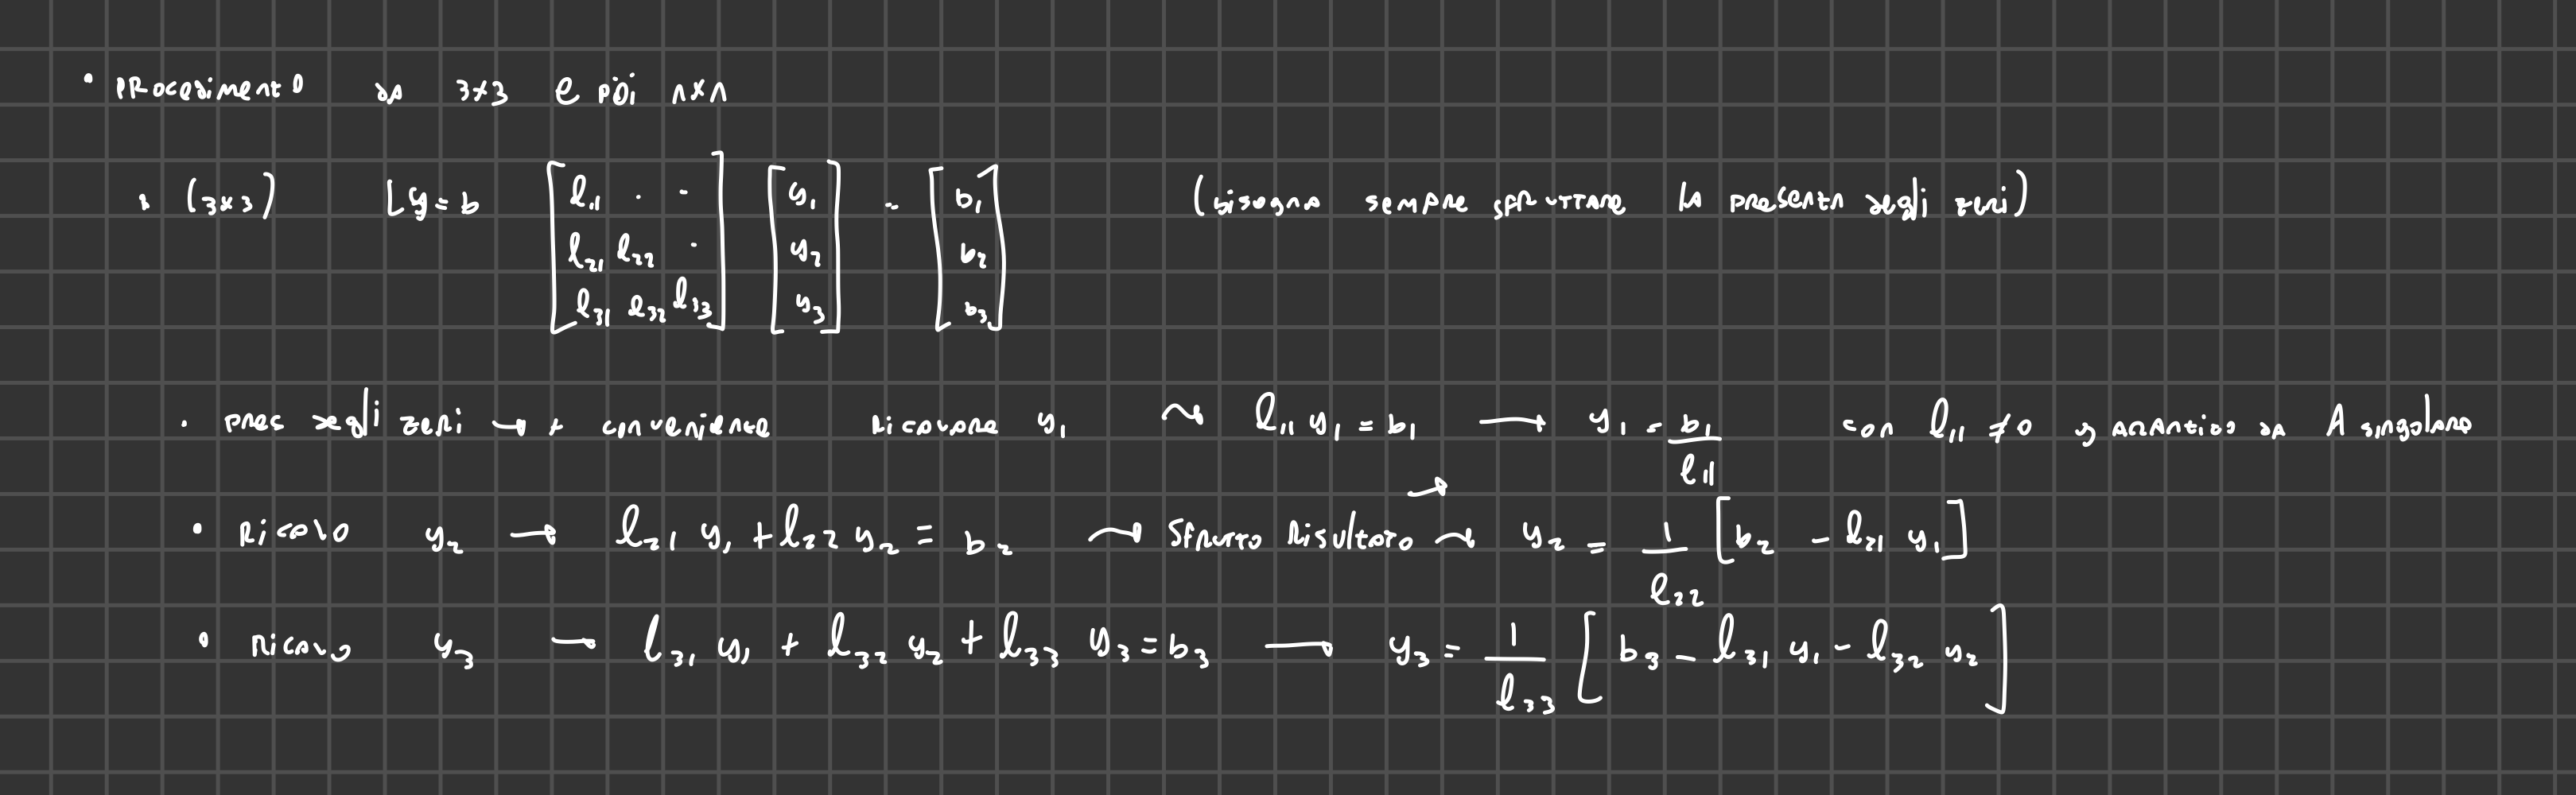 • procedimento da 3x3 e poi nxn
• (3x3) Ly = b [l11 · · ; l21 l22 · ; l31 l32 l33] [y1 ; y2 ; y3] = [b1 ; b2 ; b3] (bisogna sempre sfruttare la presenza degli zeri)
• pres degli zeri → + conveniente ricavare y1 ~ l11 y1 = b1 → y1 = b1/l11 con l11 ≠ 0 garantito da A singolare
• ricavo y2 → l21 y1 + l22 y2 = b2 ~ sfrutto risultato → y2 = 1/l22 [b2 - l21 y1]
• ricavo y3 → l31 y1 + l32 y2 + l33 y3 = b3 → y3 = 1/l33 [b3 - l31 y1 - l32 y2]